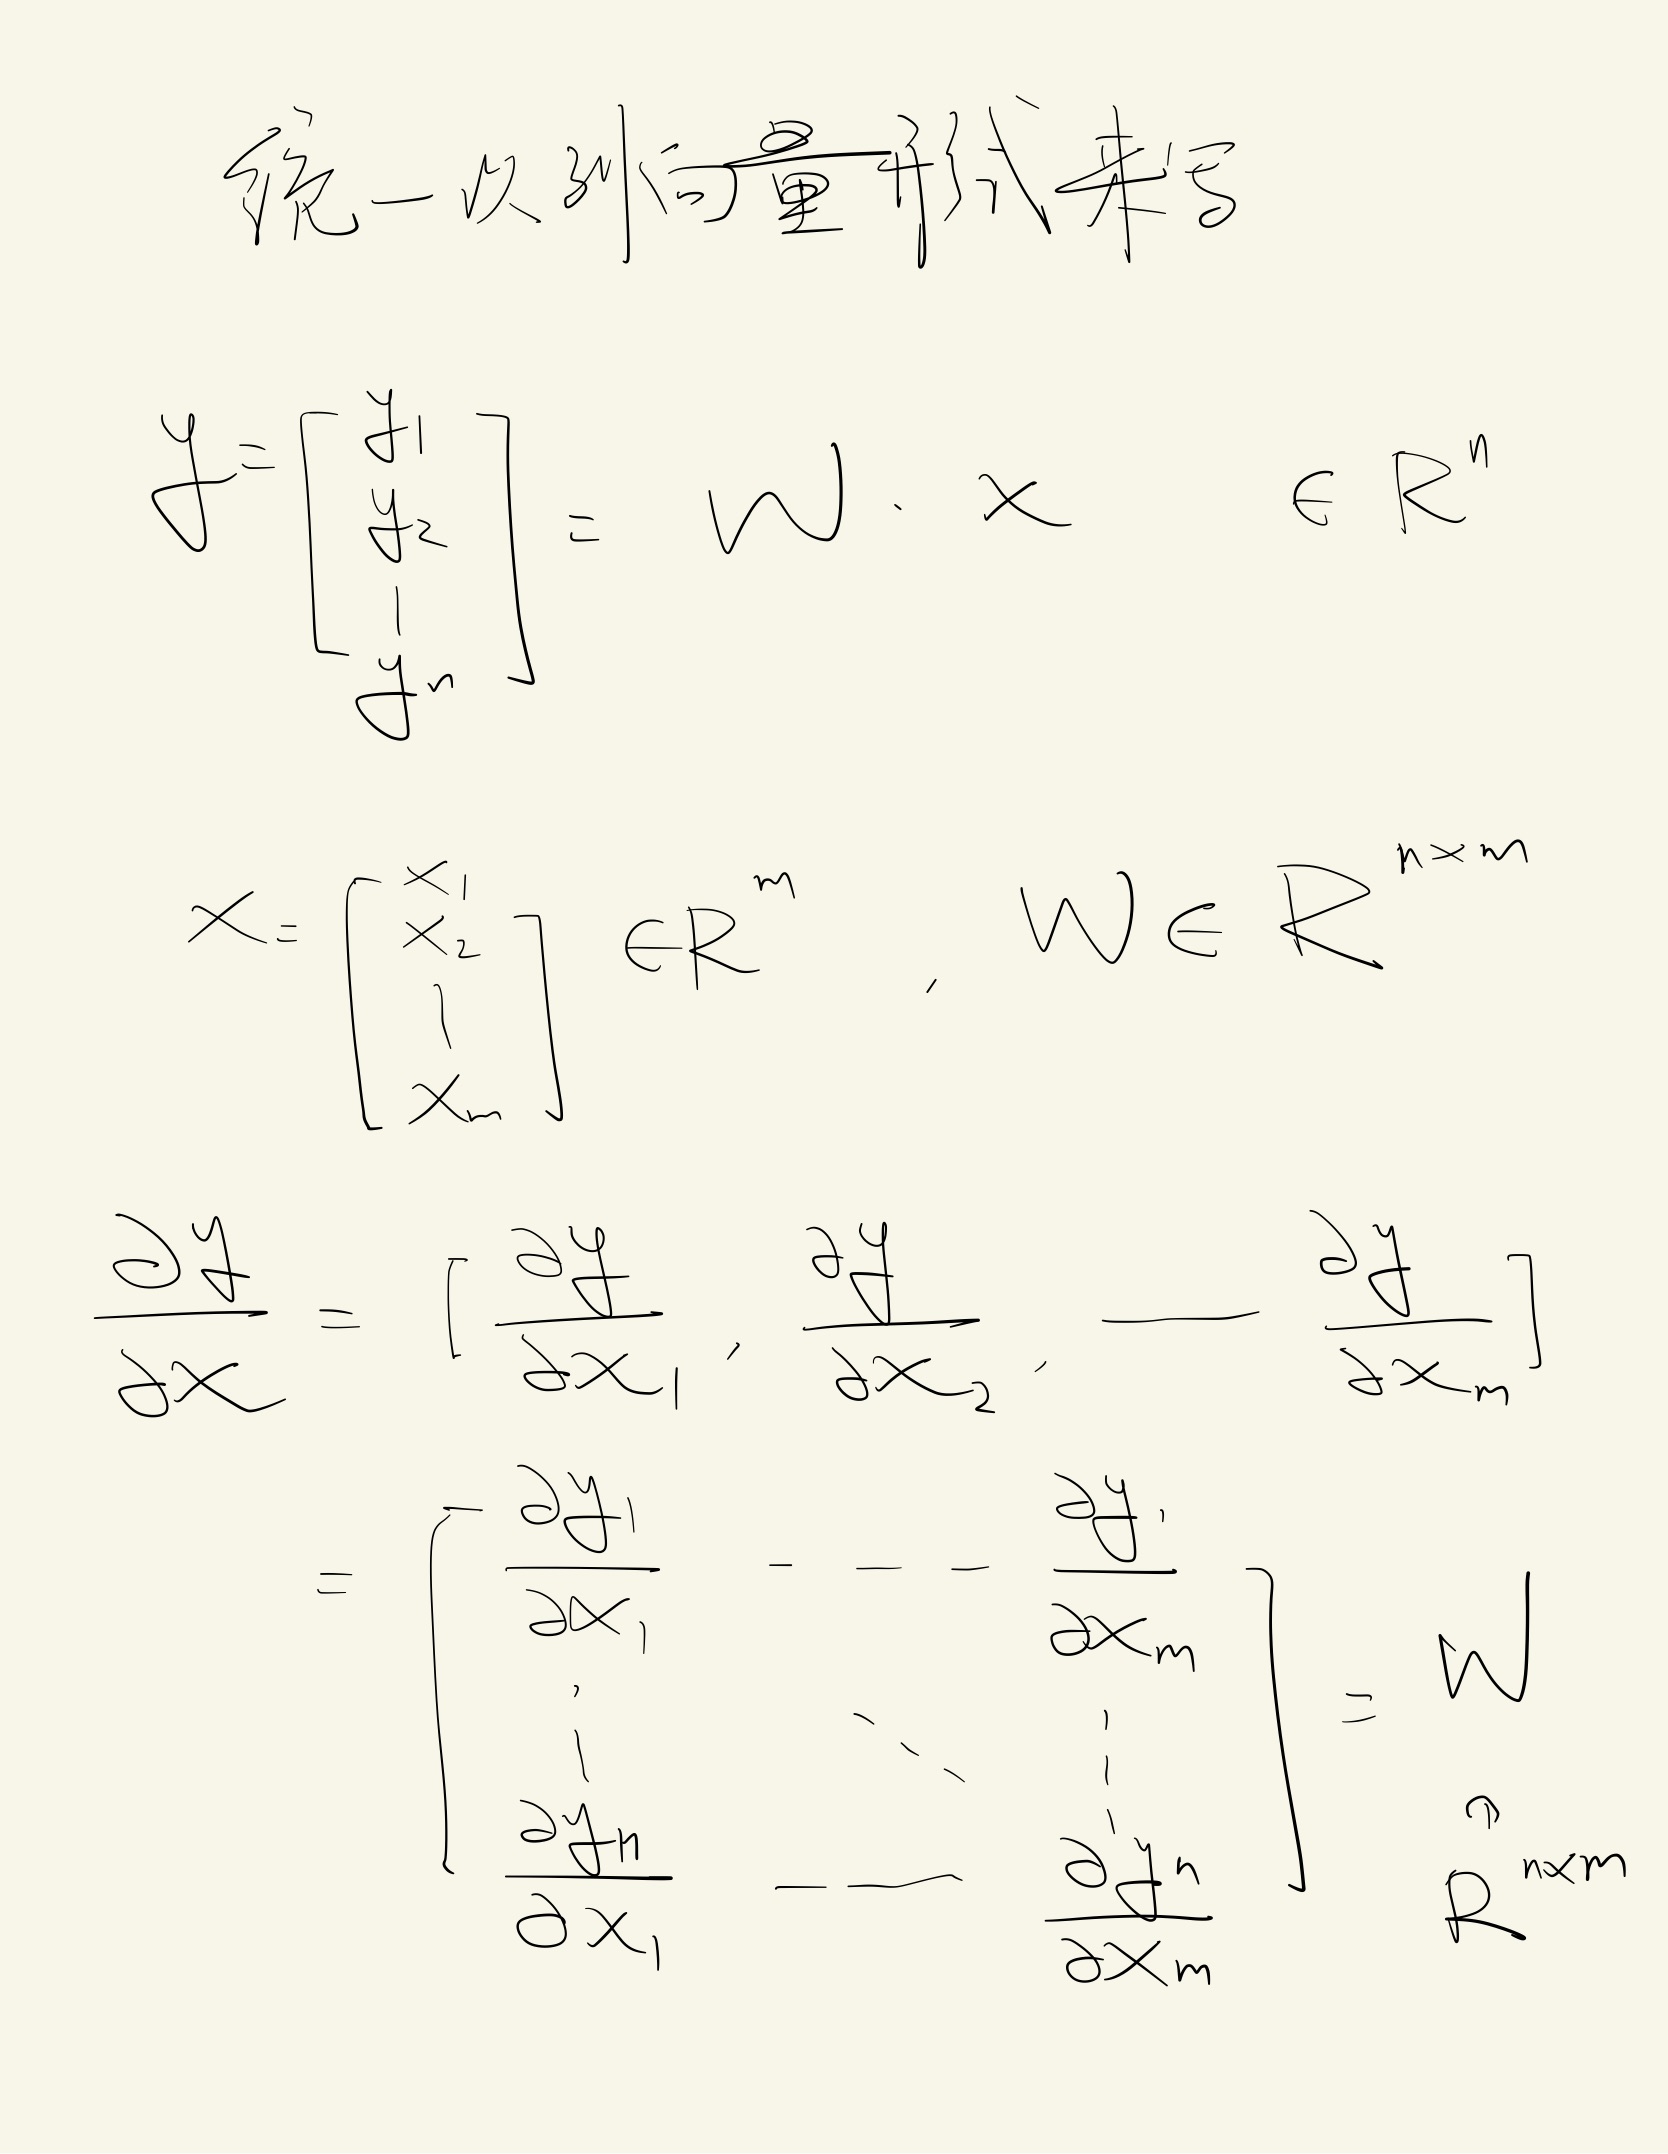 统一以列向量形式来写
y = [y₁ y₂ | yₙ] = W · x ∈ Rⁿ
x = [x₁ x₂ | xₘ] ∈ Rᵐ , W ∈ Rⁿˣᵐ
∂y/∂x = [∂y/∂x₁ , ∂y/∂x₂ , — ∂y/∂xₘ]
= [∂y₁/∂x₁ - - - ∂y₁/∂xₘ
∂yₙ/∂x₁ - — ∂yₙ/∂xₘ] = W
∈ Rⁿˣᵐ